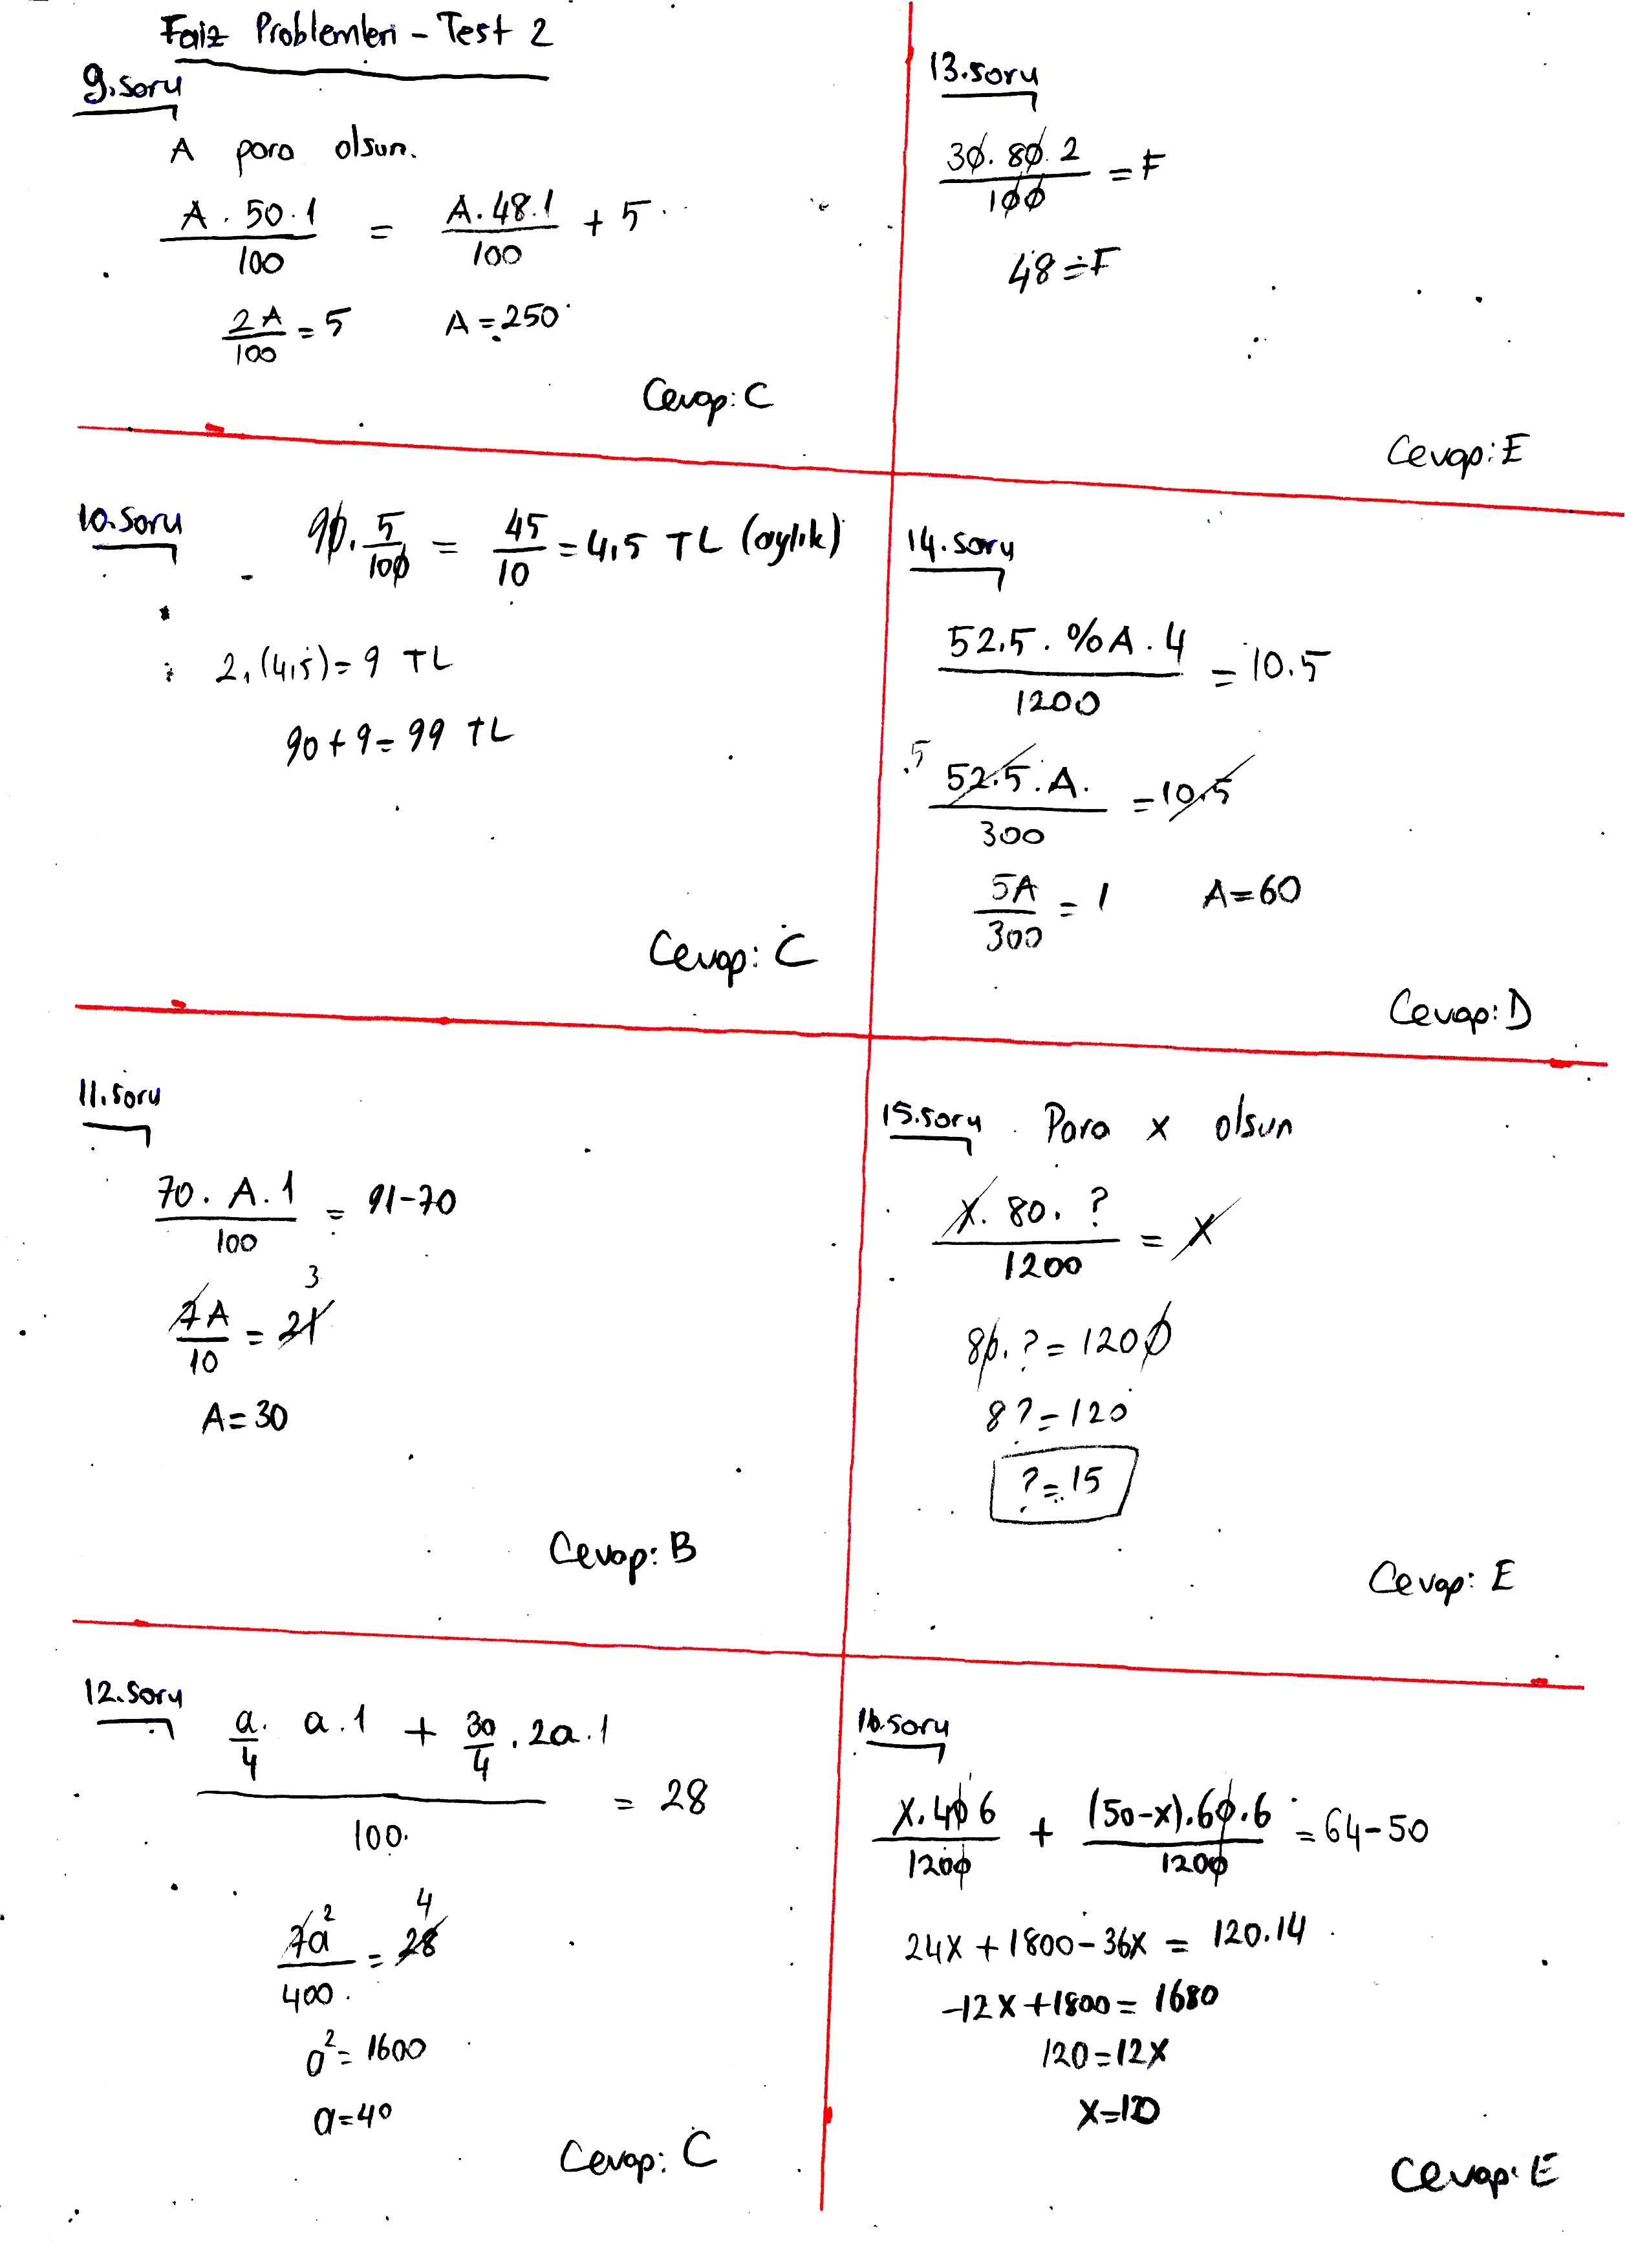 Faiz Problemleri - Test 2
9.soru
A para olsun.
A . 50 . 1 / 100 = A . 48 . 1 / 100 + 5
2A / 100 = 5   A = 250
Cevap: C
10.soru
90 . 5 / 100 = 45 / 10 = 4,5 TL (aylık)
2.(4,5) = 9 TL
90 + 9 = 99 TL
Cevap: C
11.soru
70 . A . 1 / 100 = 91 - 70
3
7A / 10 = 21
A = 30
Cevap: B
12.soru
a / 4 . a . 1 + 3a / 4 . 2a . 1 / 100 = 28
4
7a² / 400 = 28
a² = 1600
a = 40
Cevap: C
13.soru
30 . 80 . 2 / 100 = F
48 = F
Cevap: E
14.soru
52.5 . %A . 4 / 1200 = 10.5
5
52.5 . A . / 300 = 10.5
5A / 300 = 1   A = 60
Cevap: D
15.soru Para x olsun
x . 80 . ? / 1200 = x
80 . ? = 1200
8? = 120
? = 15
Cevap: E
16.soru
x . 40 6 / 1200 + (50-x) . 60 . 6 / 1200 = 64 - 50
24x + 1800 - 36x = 120.14
-12x + 1800 = 1680
120 = 12x
x = 10
Cevap: E